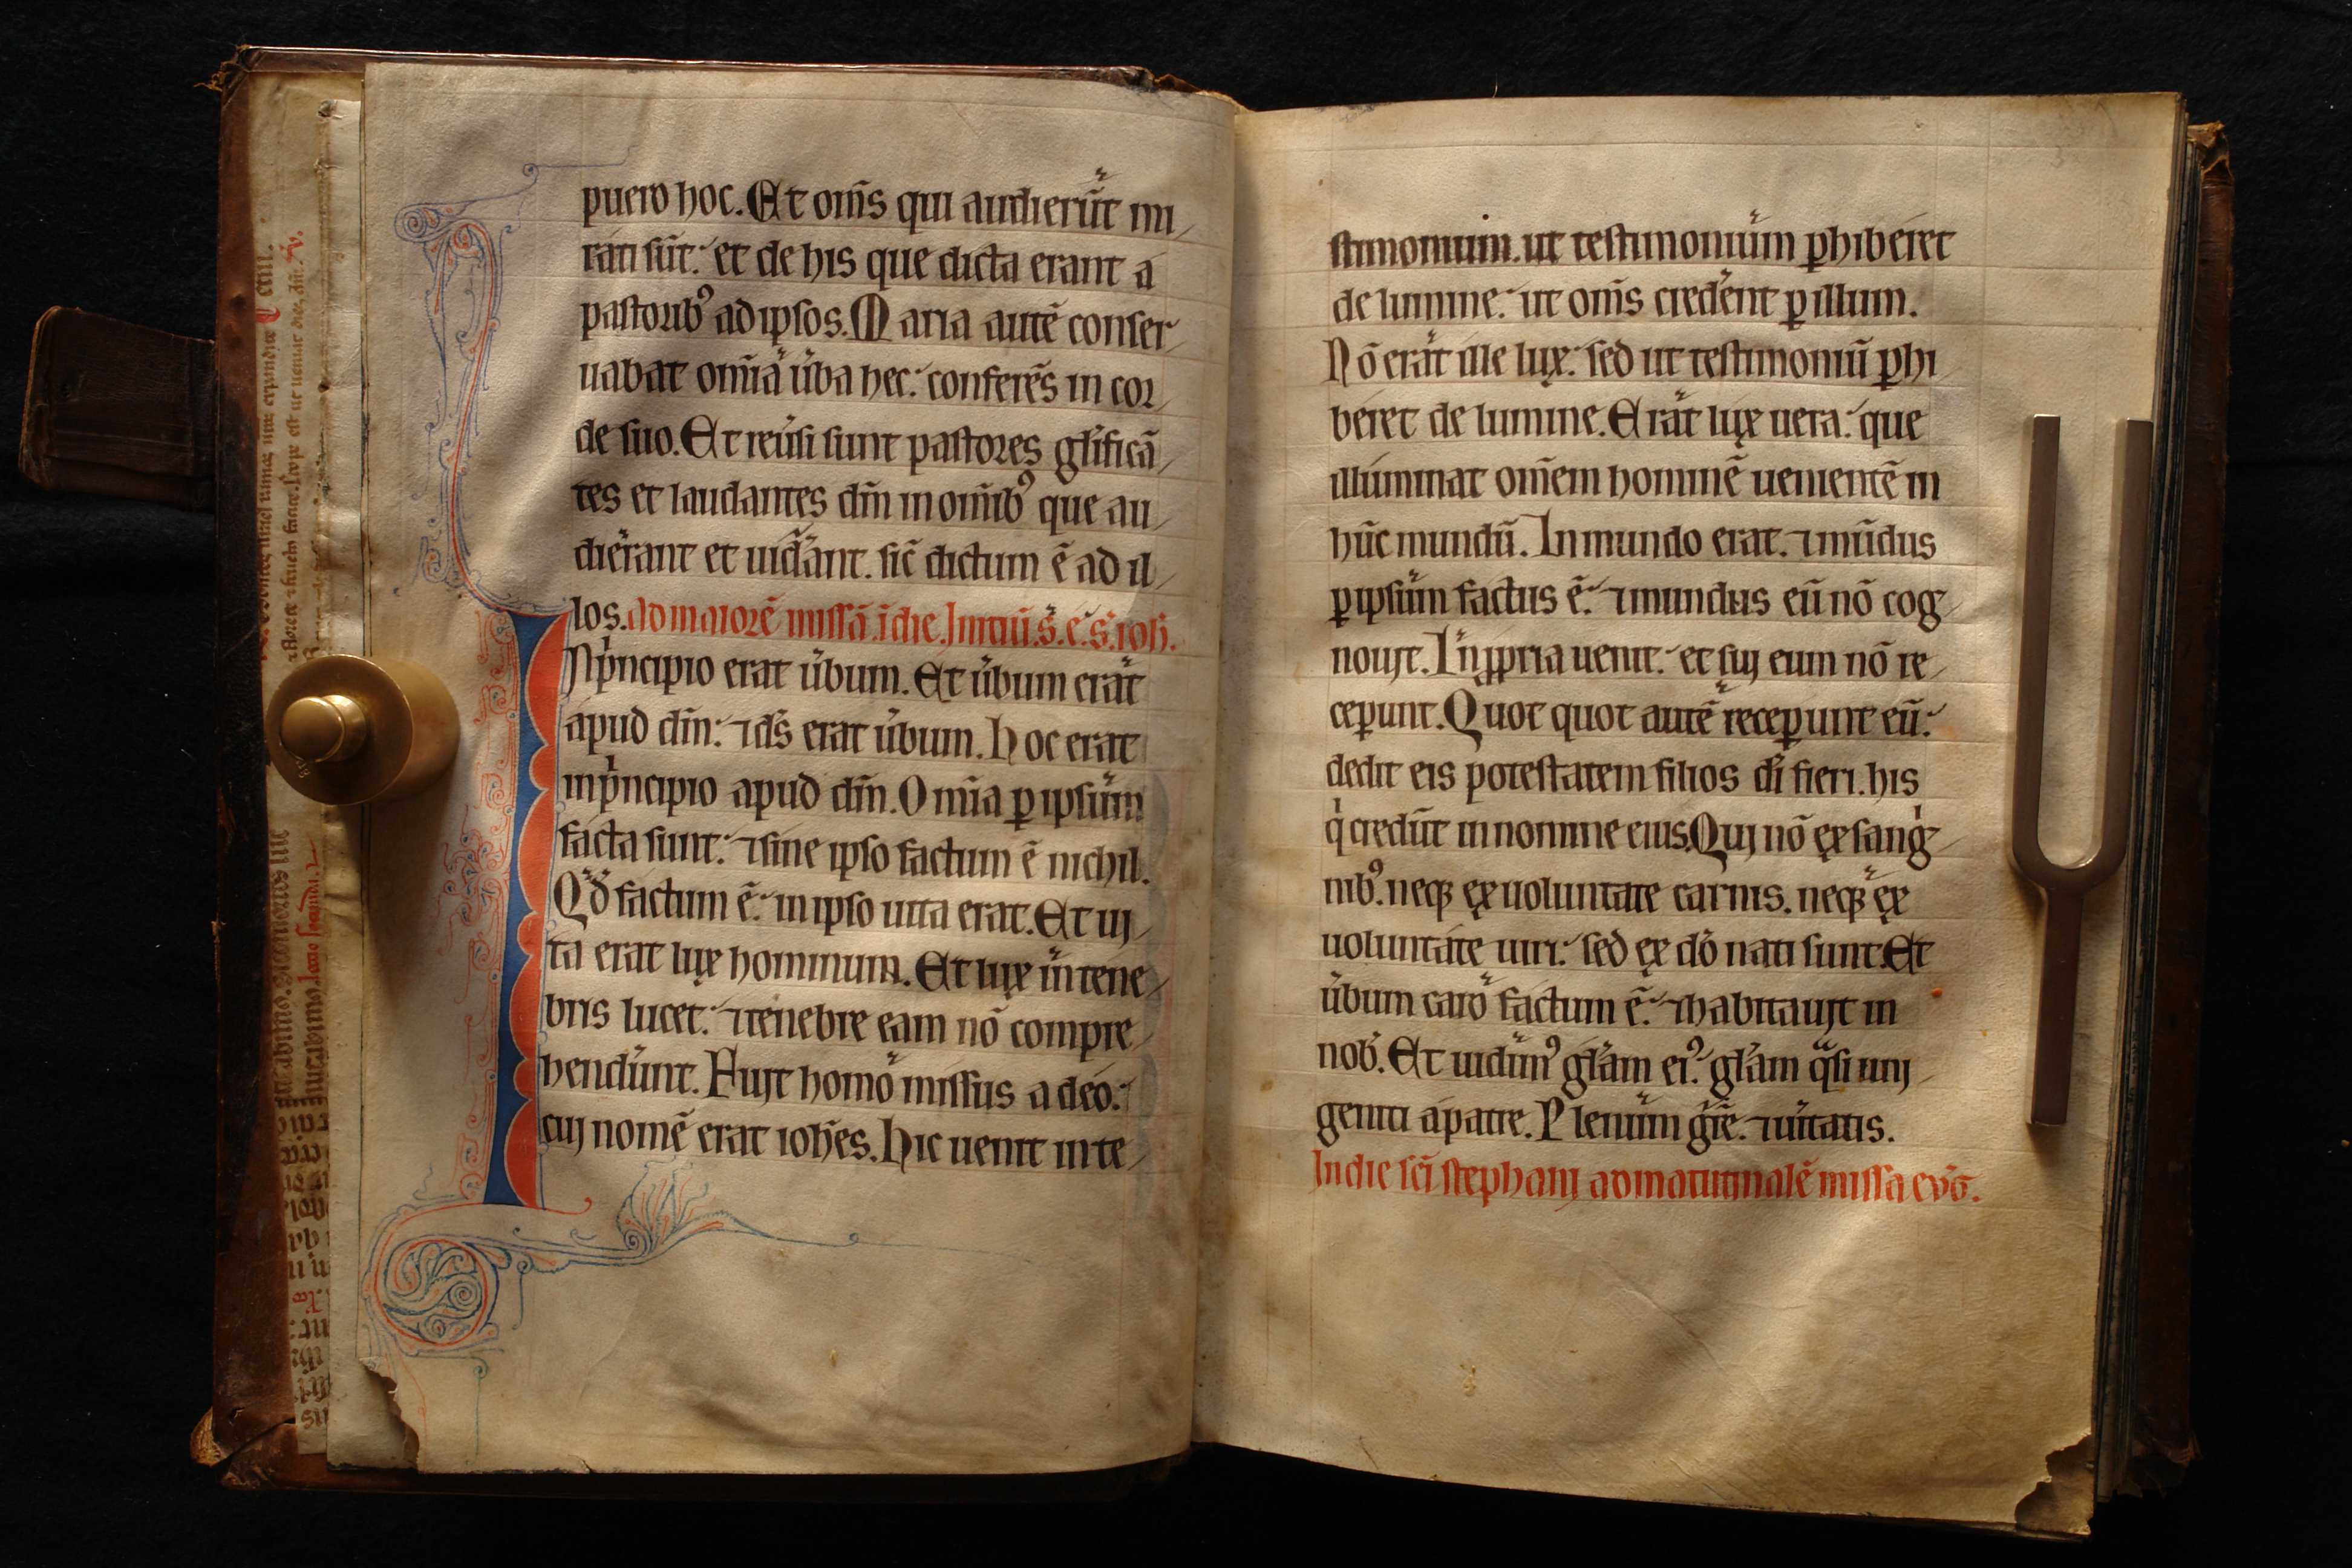 puero hoc. Et om̄s qui audierūt mi
rati sūt: et de his que dicta erant a
pastorib⁹ ad ipsos. Maria autē conser
uabat om̄ia u̇ba hec: conferēs in cor
de suo. Et reu̇si sunt pastores gl̓ificā
tes et laudantes dn̄m in om̄ib⁹ que au
dierant et uid̓ant. sic̄ dictum ē ad il
los. ad maiorē missā. ī die. Initiū. s̓. e̓. s̓. ioh̄.
In p̓ncipio erat u̇bum. Et u̇bum erat
apud dm̄: ⁊ ds̄ erat u̇bum. Hoc erat
in p̓ncipio apud dm̄. Om̄ia ꝑ ipsum
facta sunt: ⁊ sine ipso factum ē nichil.
Qd̓ factum ē: in ipso uita erat. Et ui
ta erat lux hominum. Et lux in tene
bris lucet: ⁊ tenebre eam nō compre
hendunt. Fuit homo missus a deo:
cuj nomē erat ioh̄es. Hic uenit in te
stimonium. ut testimonium ꝑhiberet
de lumine: ut om̄s cred̓ent ꝑ illum.
Nō erat ille lux: sed ut testimoniū ꝑhi
beret de lumine. Erat lux uera: que
illuminat om̄em hominē uenientē in
hūc mundū. In mundo erat. ⁊ mūdus
ꝑ ipsum factus ē: ⁊ mundus eū nō cog
nouit. In ꝓpria uenit: et suj eum nō re
ceꝑunt. Quot quot autē receꝑunt eū:
dedit eis potestatem filios di̓ fieri. his
q̓ credūt in nomine eius. Quj nō ex sang̓
nib⁹. neqꝫ ex uoluntate carnis. neqꝫ ex
uoluntate uiri: sed ex do̓ nati sunt. Et
u̇bum caro factum ē: ⁊ habitauit in
nob̓. Et uidim⁹ gl̓am ei⁹: gl̓am q̓si unj
geniti a patre. Plenum gr̄e. ⁊ uı̇tatis.
In die sc̄i stephanj ad matutinalē missā euḡ.